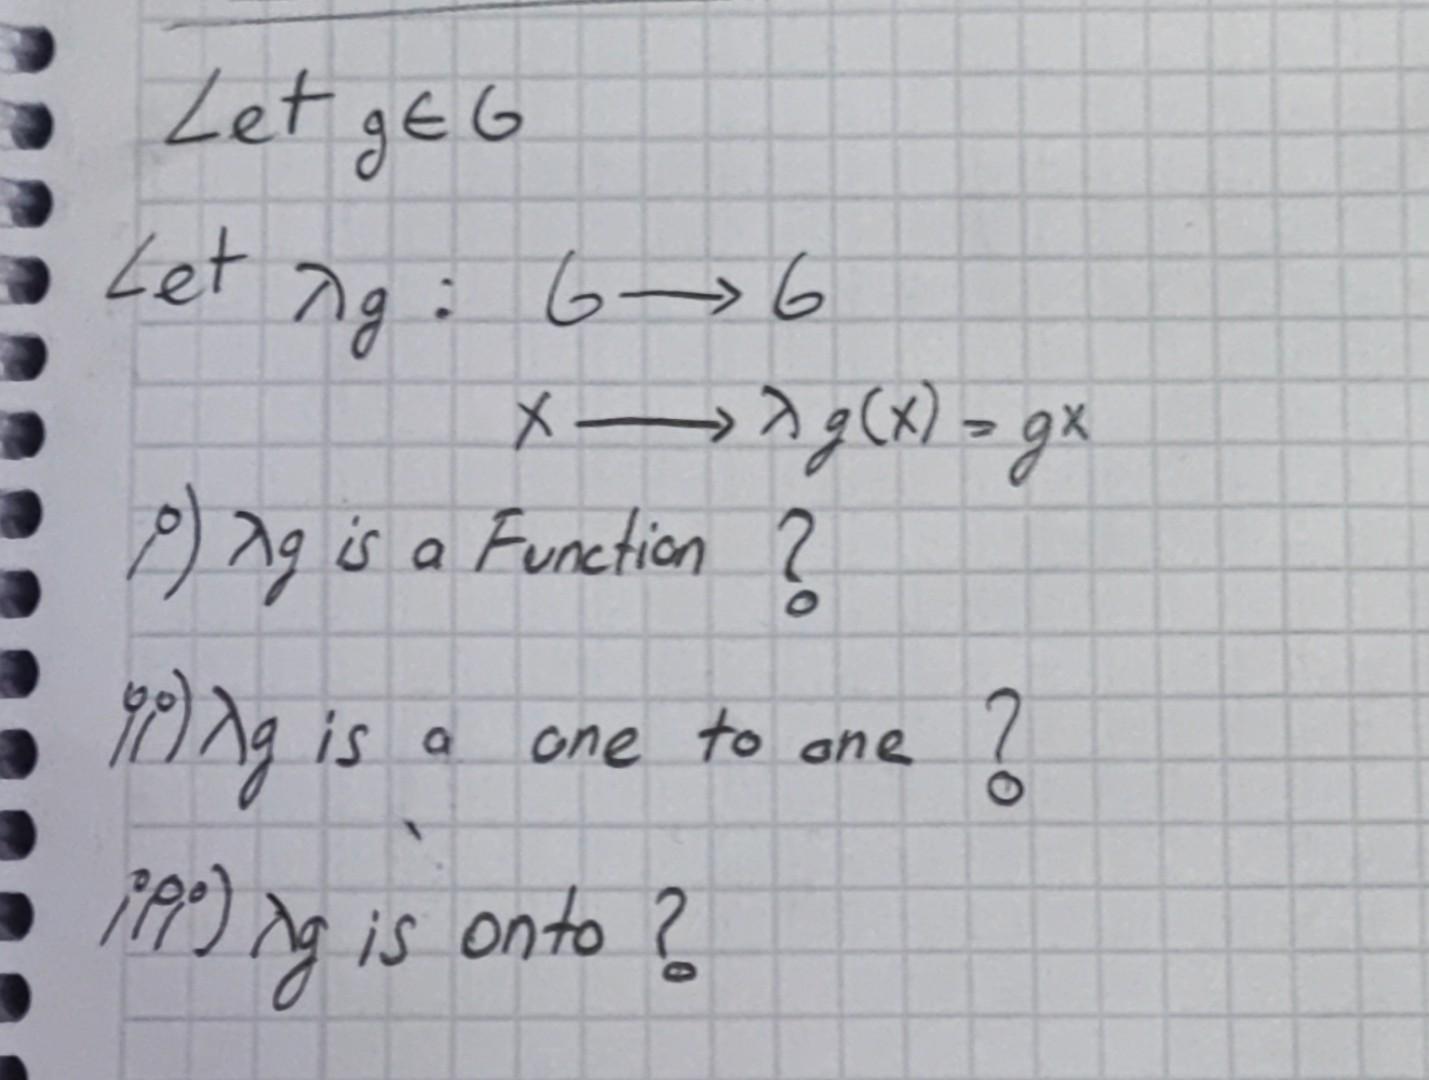 Let g ∈ G
Let λg : G → G
x → λg(x) = gx
i) λg is a Function ?
ii) λg is a one to one ?
iii) λg is onto ?